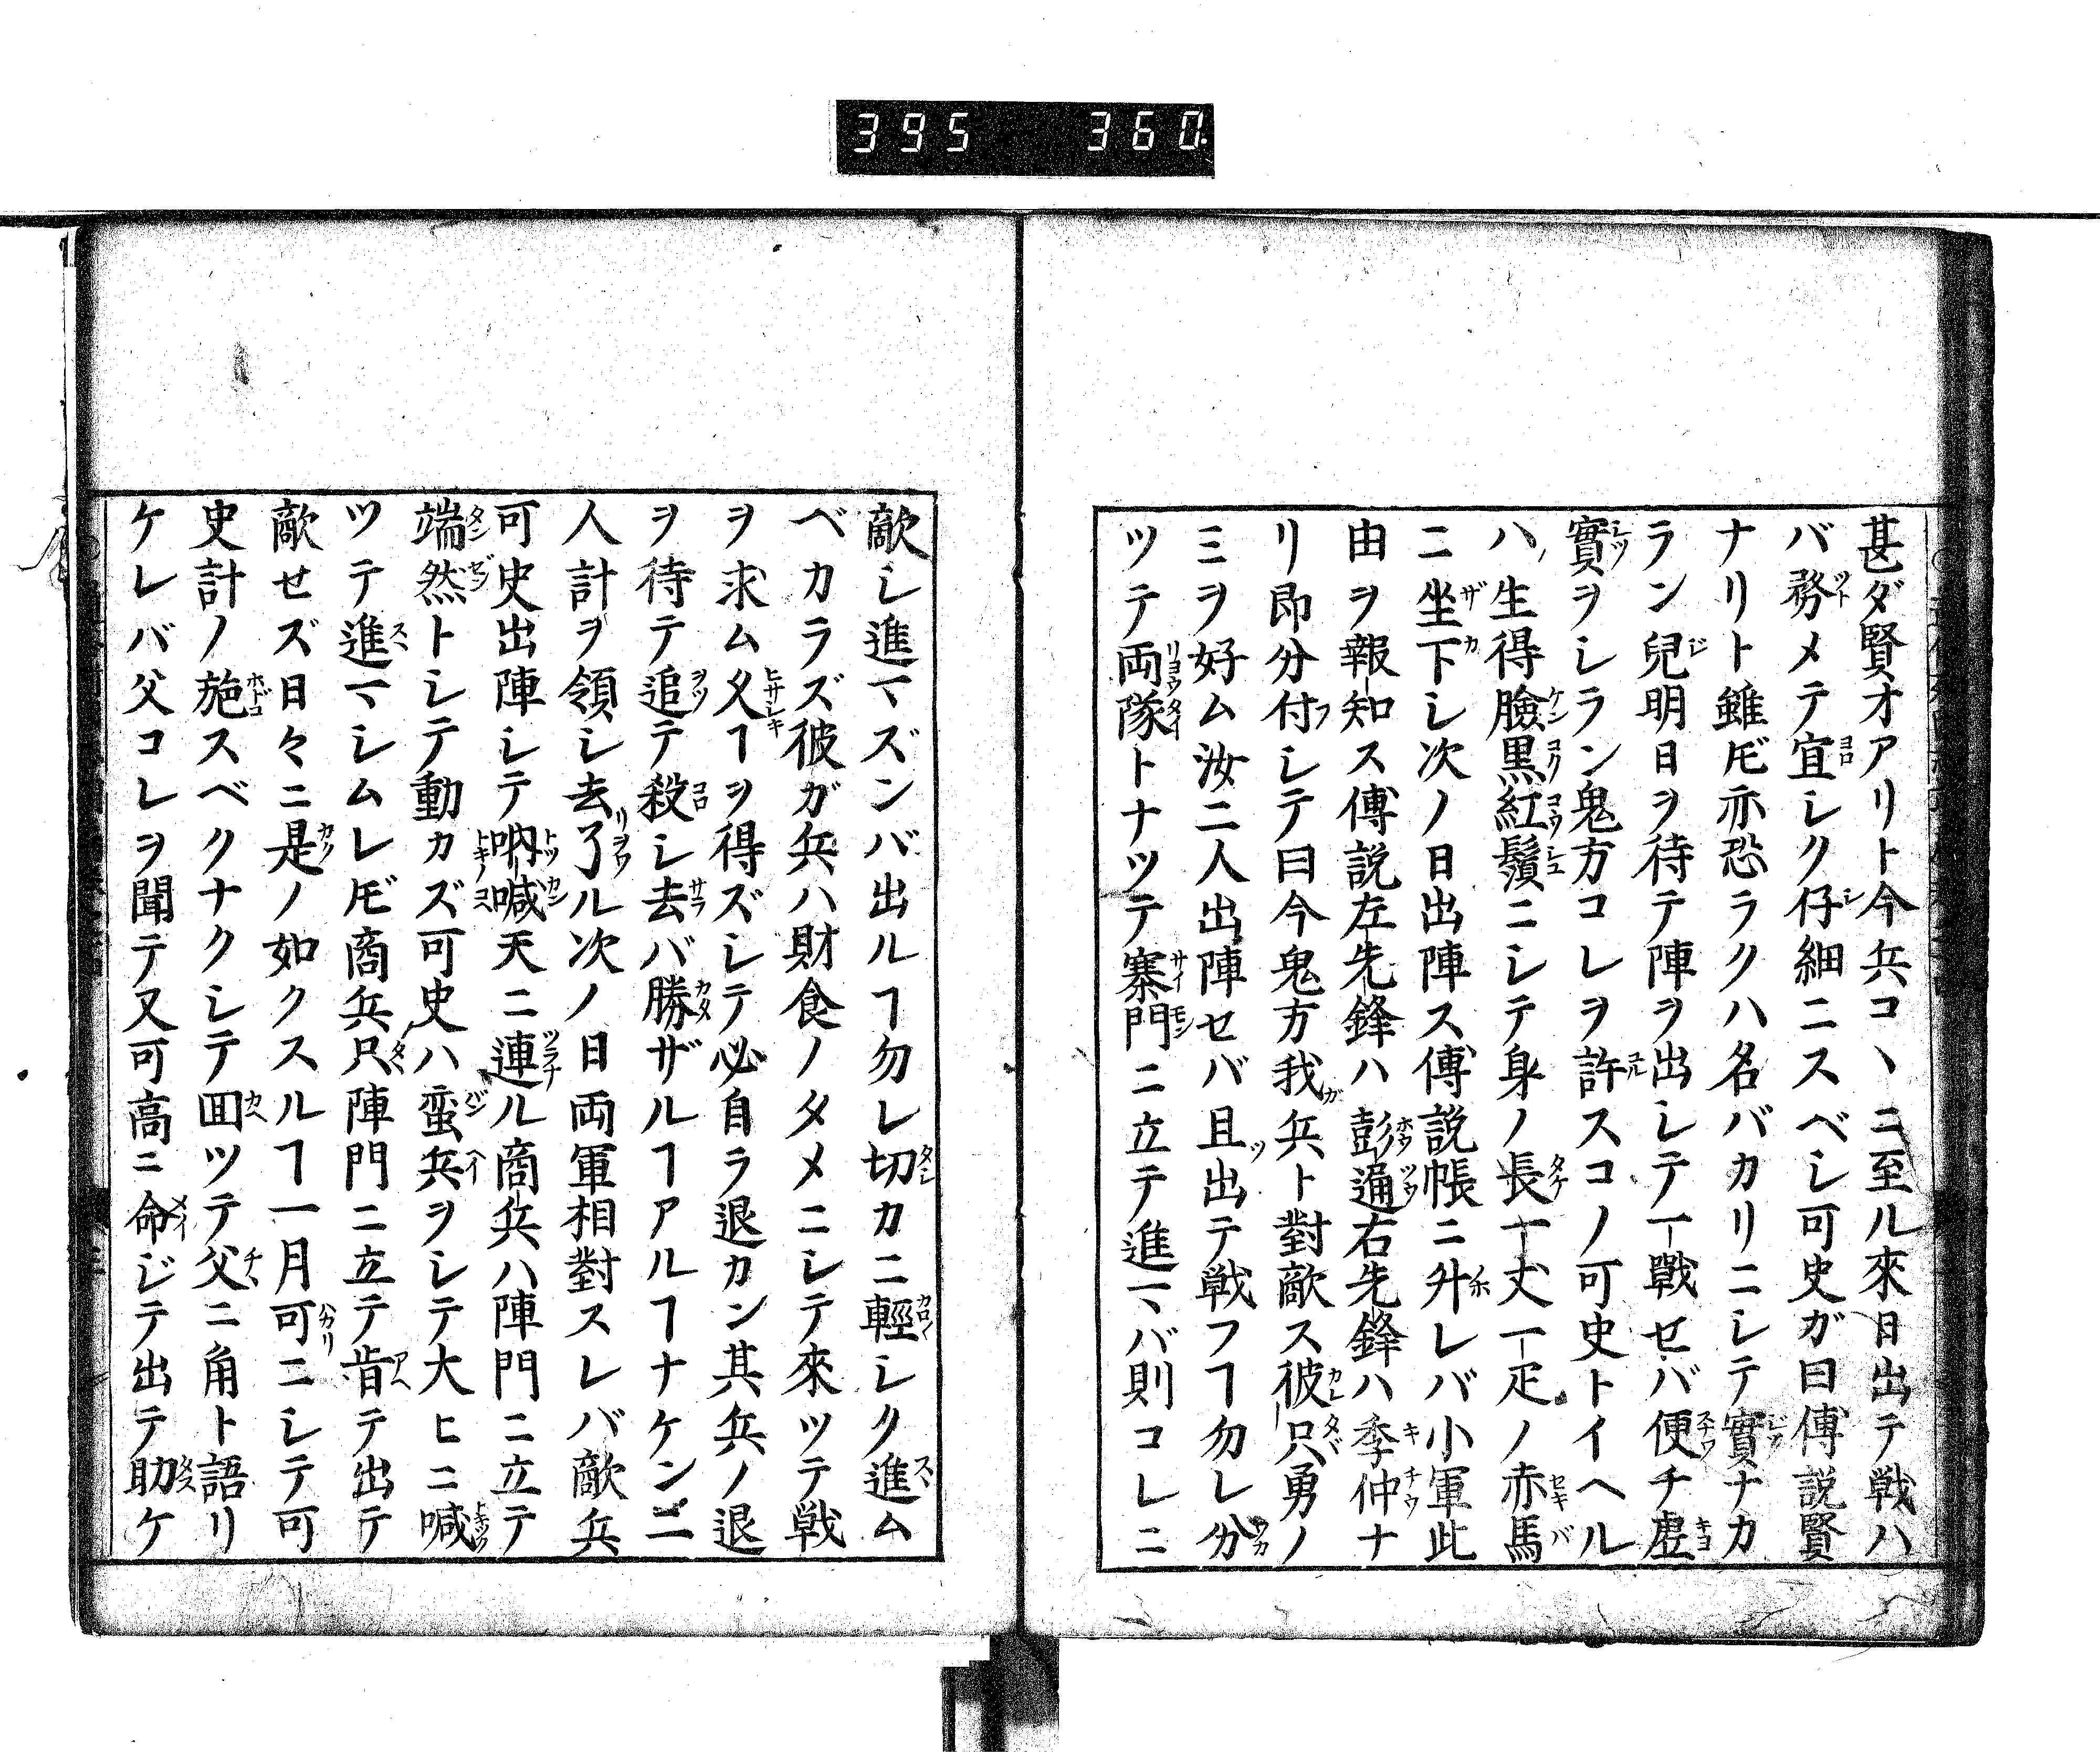 395 360
甚ダ賢オアリト今兵コヽニ至ル來日出テ戦ハ
バ務メテ宜シク仔細ニスベシ可史ガ曰傅説賢
ナリト雖𪜈亦恐ラクハ名バカリニシテ實ナカ
ラン兒明日ヲ待テ陣ヲ出シテ一戰セバ便チ虚
實ヲシラン鬼方コレヲ許スコノ可史トイヘル
ハ生得臉黒紅鬚ニシテ身ノ長一丈一疋ノ赤馬
ニ坐下シ次ノ日出陣ス傅説帳ニ升レバ小軍此
由ヲ報知ス傅説左先鋒ハ彭通右先鋒ハ季仲ナ
リ即分付シテ曰今鬼方我兵ト對敵ス彼只勇ノ
ミヲ好ム汝二人出陣セバ且出テ戦フヿ勿レ分
ツテ両隊トナツテ寨門ニ立テ進マバ則コレニ
敵シ進マズンバ出ルヿ勿レ切カニ輕シク進ム
ベカラズ彼ガ兵ハ財食ノタメニシテ來ツテ戦
ヲ求ム久ヿヲ得ズシテ必自ラ退カン其兵ノ退
ヲ待テ追テ殺シ去バ勝ザルヿアルヿナケン二
人計ヲ領シ去了ル次ノ日両軍相對スレバ敵兵
可史出陣シテ吶喊天ニ連ル商兵ハ陣門ニ立テ
端然トシテ動カズ可史ハ蛮兵ヲシテ大ヒニ喊
ツテ進マシムレ𪜈商兵只陣門ニ立テ肯テ出テ
敵セズ日々ニ是ノ如クスルヿ一月可ニシテ可
史計ノ施スベクナクシテ囬ツテ父ニ角ト語リ
ケレバ父コレヲ聞テ又可高ニ命ジテ出テ助ケ